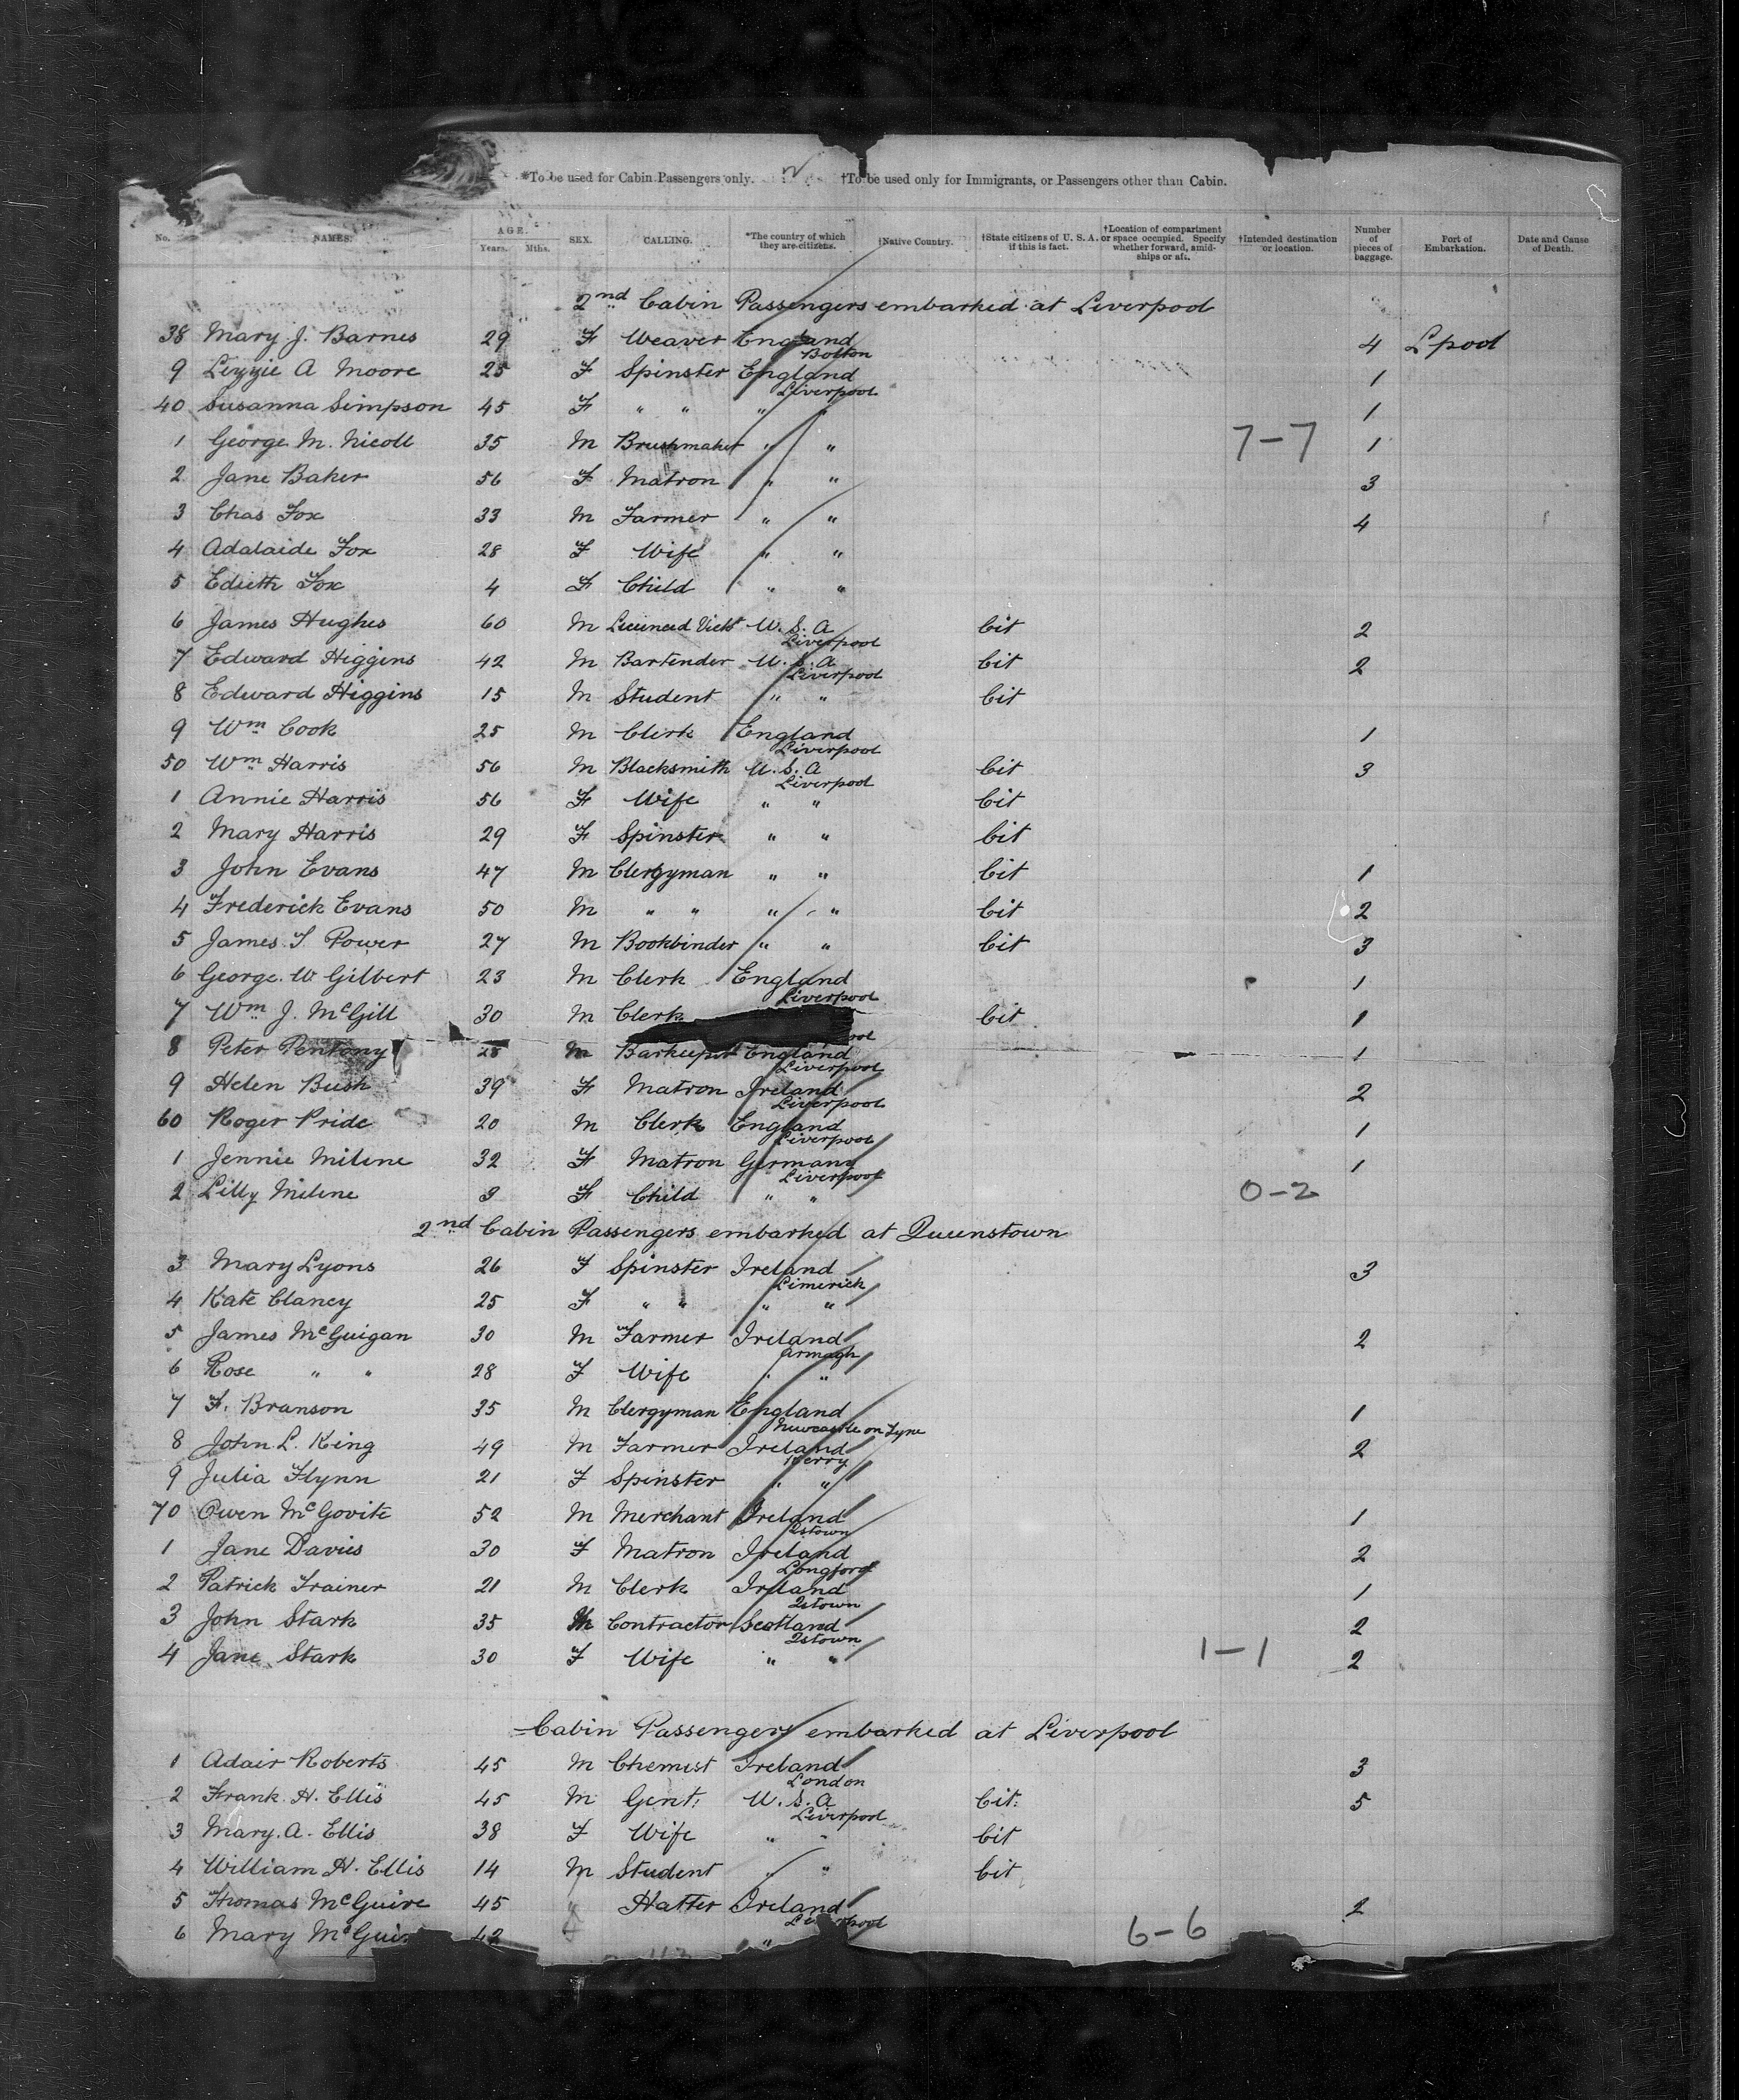 *To be used for Cabin Passengers only. †To be used only for Immigrants, or Passengers other than Cabin.
No. NAMES. AGE. Years. Mths. SEX. CALLING. *The country of which they are citizens. †Native Country. †State citizens of U. S. A. if this is fact. †Location of compartment or space occupied. Specify whether forward, amidships or aft. †Intended destination or location. Number of pieces of baggage. Port of Embarkation. Date and Cause of Death.
2nd Cabin Passengers embarked at Liverpool
38 Mary J. Barnes 29 F Weaver England Bolton 4 Lpool
9 Lizzie A Moore 25 F Spinster England Liverpool 1
40 Susanna Simpson 45 F " " " " 1
1 George M. Nicoll 35 M Brushmaker " " 7-7 1
2 Jane Baker 56 F Matron " " 3
3 Chas Fox 33 M Farmer " " 4
4 Adalaide Fox 28 F Wife " "
5 Edieth Fox 4 F Child " "
6 James Hughes 60 M Licenced Vict U. S. A Liverpool Cit 2
7 Edward Higgins 42 M Bartender U. S. A Liverpool Cit 2
8 Edward Higgins 15 M Student " " Cit
9 Wm Cook 25 M Clerk England Liverpool 1
50 Wm Harris 56 M Blacksmith U. S. A Liverpool Cit 3
1 Annie Harris 56 F Wife " " Cit
2 Mary Harris 29 F Spinster " " Cit
3 John Evans 47 M Clergyman " " Cit 1
4 Frederick Evans 50 M " " " " Cit 2
5 James T. Power 27 M Bookbinder " " Cit 3
6 George W Gilbert 23 M Clerk England Liverpool 1
7 Wm J. McGill 30 M Clerk Cit 1
8 Peter Pentony 28 M Barkeeper England Liverpool 1
9 Helen Bush 39 F Matron Ireland Liverpool 2
60 Roger Pride 20 M Clerk England Liverpool 1
1 Jennie Milene 32 F Matron Germany Liverpool 1
2 Lilly Milene 9 F Child " " 0-2
2nd Cabin Passengers embarked at Queenstown
3 Mary Lyons 26 F Spinster Ireland Limerick 3
4 Kate Clancy 25 F " " " "
5 James McGuigan 30 M Farmer Ireland Armagh 2
6 Rose " " 28 F Wife " "
7 F. Branson 35 M Clergyman England Newcastle on Tyne 1
8 John L. King 49 M Farmer Ireland Kerry 2
9 Julia Flynn 21 F Spinster " "
70 Owen McGovite 52 M Merchant Ireland Qstown 1
1 Jane Davies 30 F Matron Ireland Longford 2
2 Patrick Trainer 21 M Clerk Ireland Qstown 1
3 John Stark 35 M Contractor Scotland Qstown 2
4 Jane Stark 30 F Wife " " 1-1 2
Cabin Passengers embarked at Liverpool
1 Adair Roberts 45 M Chemist Ireland London 3
2 Frank. H. Ellis 45 M Gent. U. S. A Liverpool Cit. 5
3 Mary. A. Ellis 38 F Wife " " Cit
4 William H. Ellis 14 M Student " " Cit
5 Thomas McGuire 45 " Hatter Ireland Liverpool 2
6 Mary 42 " 6-6